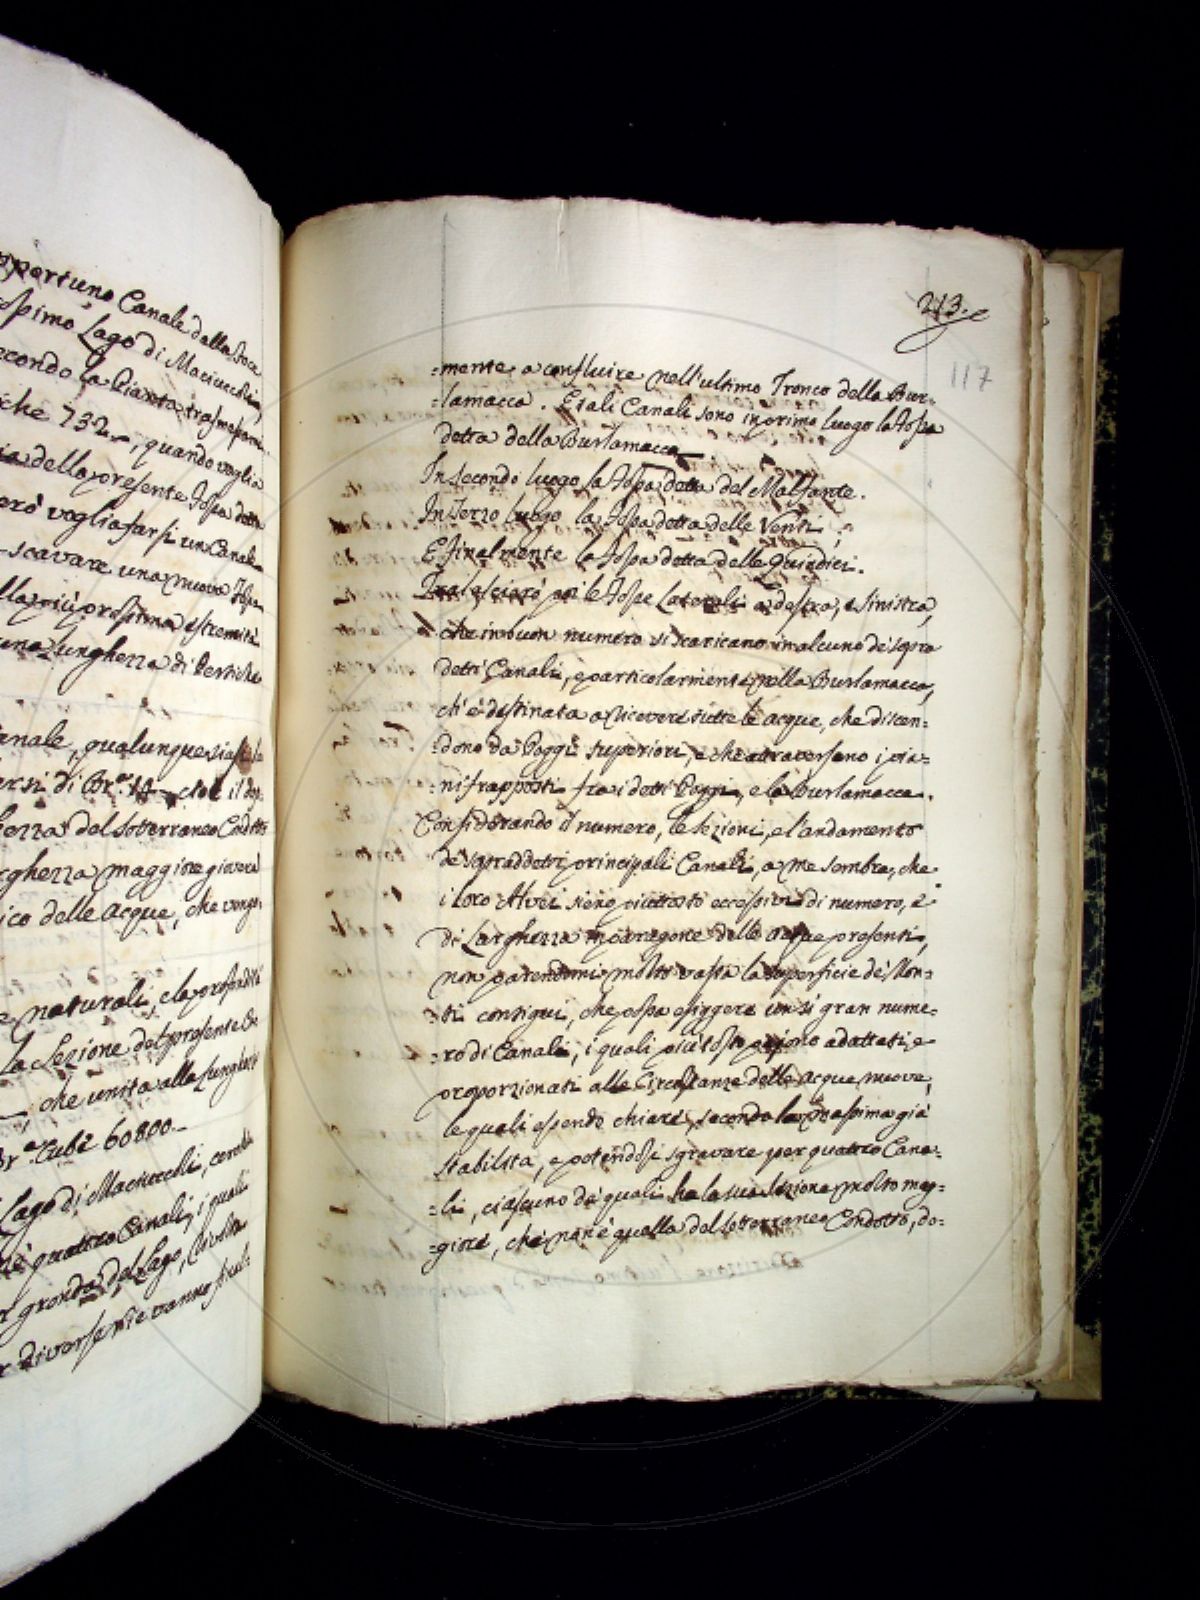 opportuno Canale dalla foce
ossimo Lago di Maciuccoli,
econdo la Pianta trasmessami
iche 732, quando voglia
ia della presente Fossa detta
erò voglia farsi un Canale
scavare una nuova Fossa
lla più prossima estremità
una lunghezza di Pertiche
anale, qualunque siasi la
ersi di Br.ª 14 cioè il dop
hezza del sotterraneo Condotto
rghezza maggiore gioverà
ico delle acque, che vengo
e naturali, e la profondità
la Sezione del presente
, che unita alla lunghezza
Br.ª Cube 60800.
Lago di Maciuccoli,
è quattro Canali, i quali
gronda del Lago,
diverse vie vanno final-
213.
117
=mente a confluire nell'ultimo Tronco della Bur=
=lamacca. E tali Canali sono in primo luogo la Fossa
detta della Burlamacca
In secondo luogo la Fossa detta del Malfante.
In Terzo luogo la Fossa detta delle Venti;
E finalmente la Fossa detta delle Quindici.
Tralascierò poi le Fosse Laterali a destra, e sinistra,
che in buon numero si scaricano in alcuno de' sopra
detti Canali, e particolarmente nella Burlamacca,
ch'è destinata a ricevere tutte le acque, che discen=
=dono da Poggi superiori, e che attraversano i pia=
=ni frapposti fra i detti Poggi, e la Burlamacca.
Considerando il numero, le sezioni, e l'andamento
de' sopraddetti principali Canali, a me sembra, che
i loro Alvei sieno piuttosto eccessivi di numero, e
di Larghezza in paragone delle acque presenti,
non parendomi molto vasta la superficie de' Mon=
=ti contigui, che possa esiggere un sì gran nume=
=ro di Canali, i quali piuttosto adattati, e
proporzionati alle Circostanze delle acque nuove,
le quali essendo chiare, secondo la massima già
stabilita, e potendosi sgravare per quattro Cana=
=li, ciascuno de' quali ha la sua Sezione molto mag=
=giore, che non è quella del sotterraneo Condotto, do=